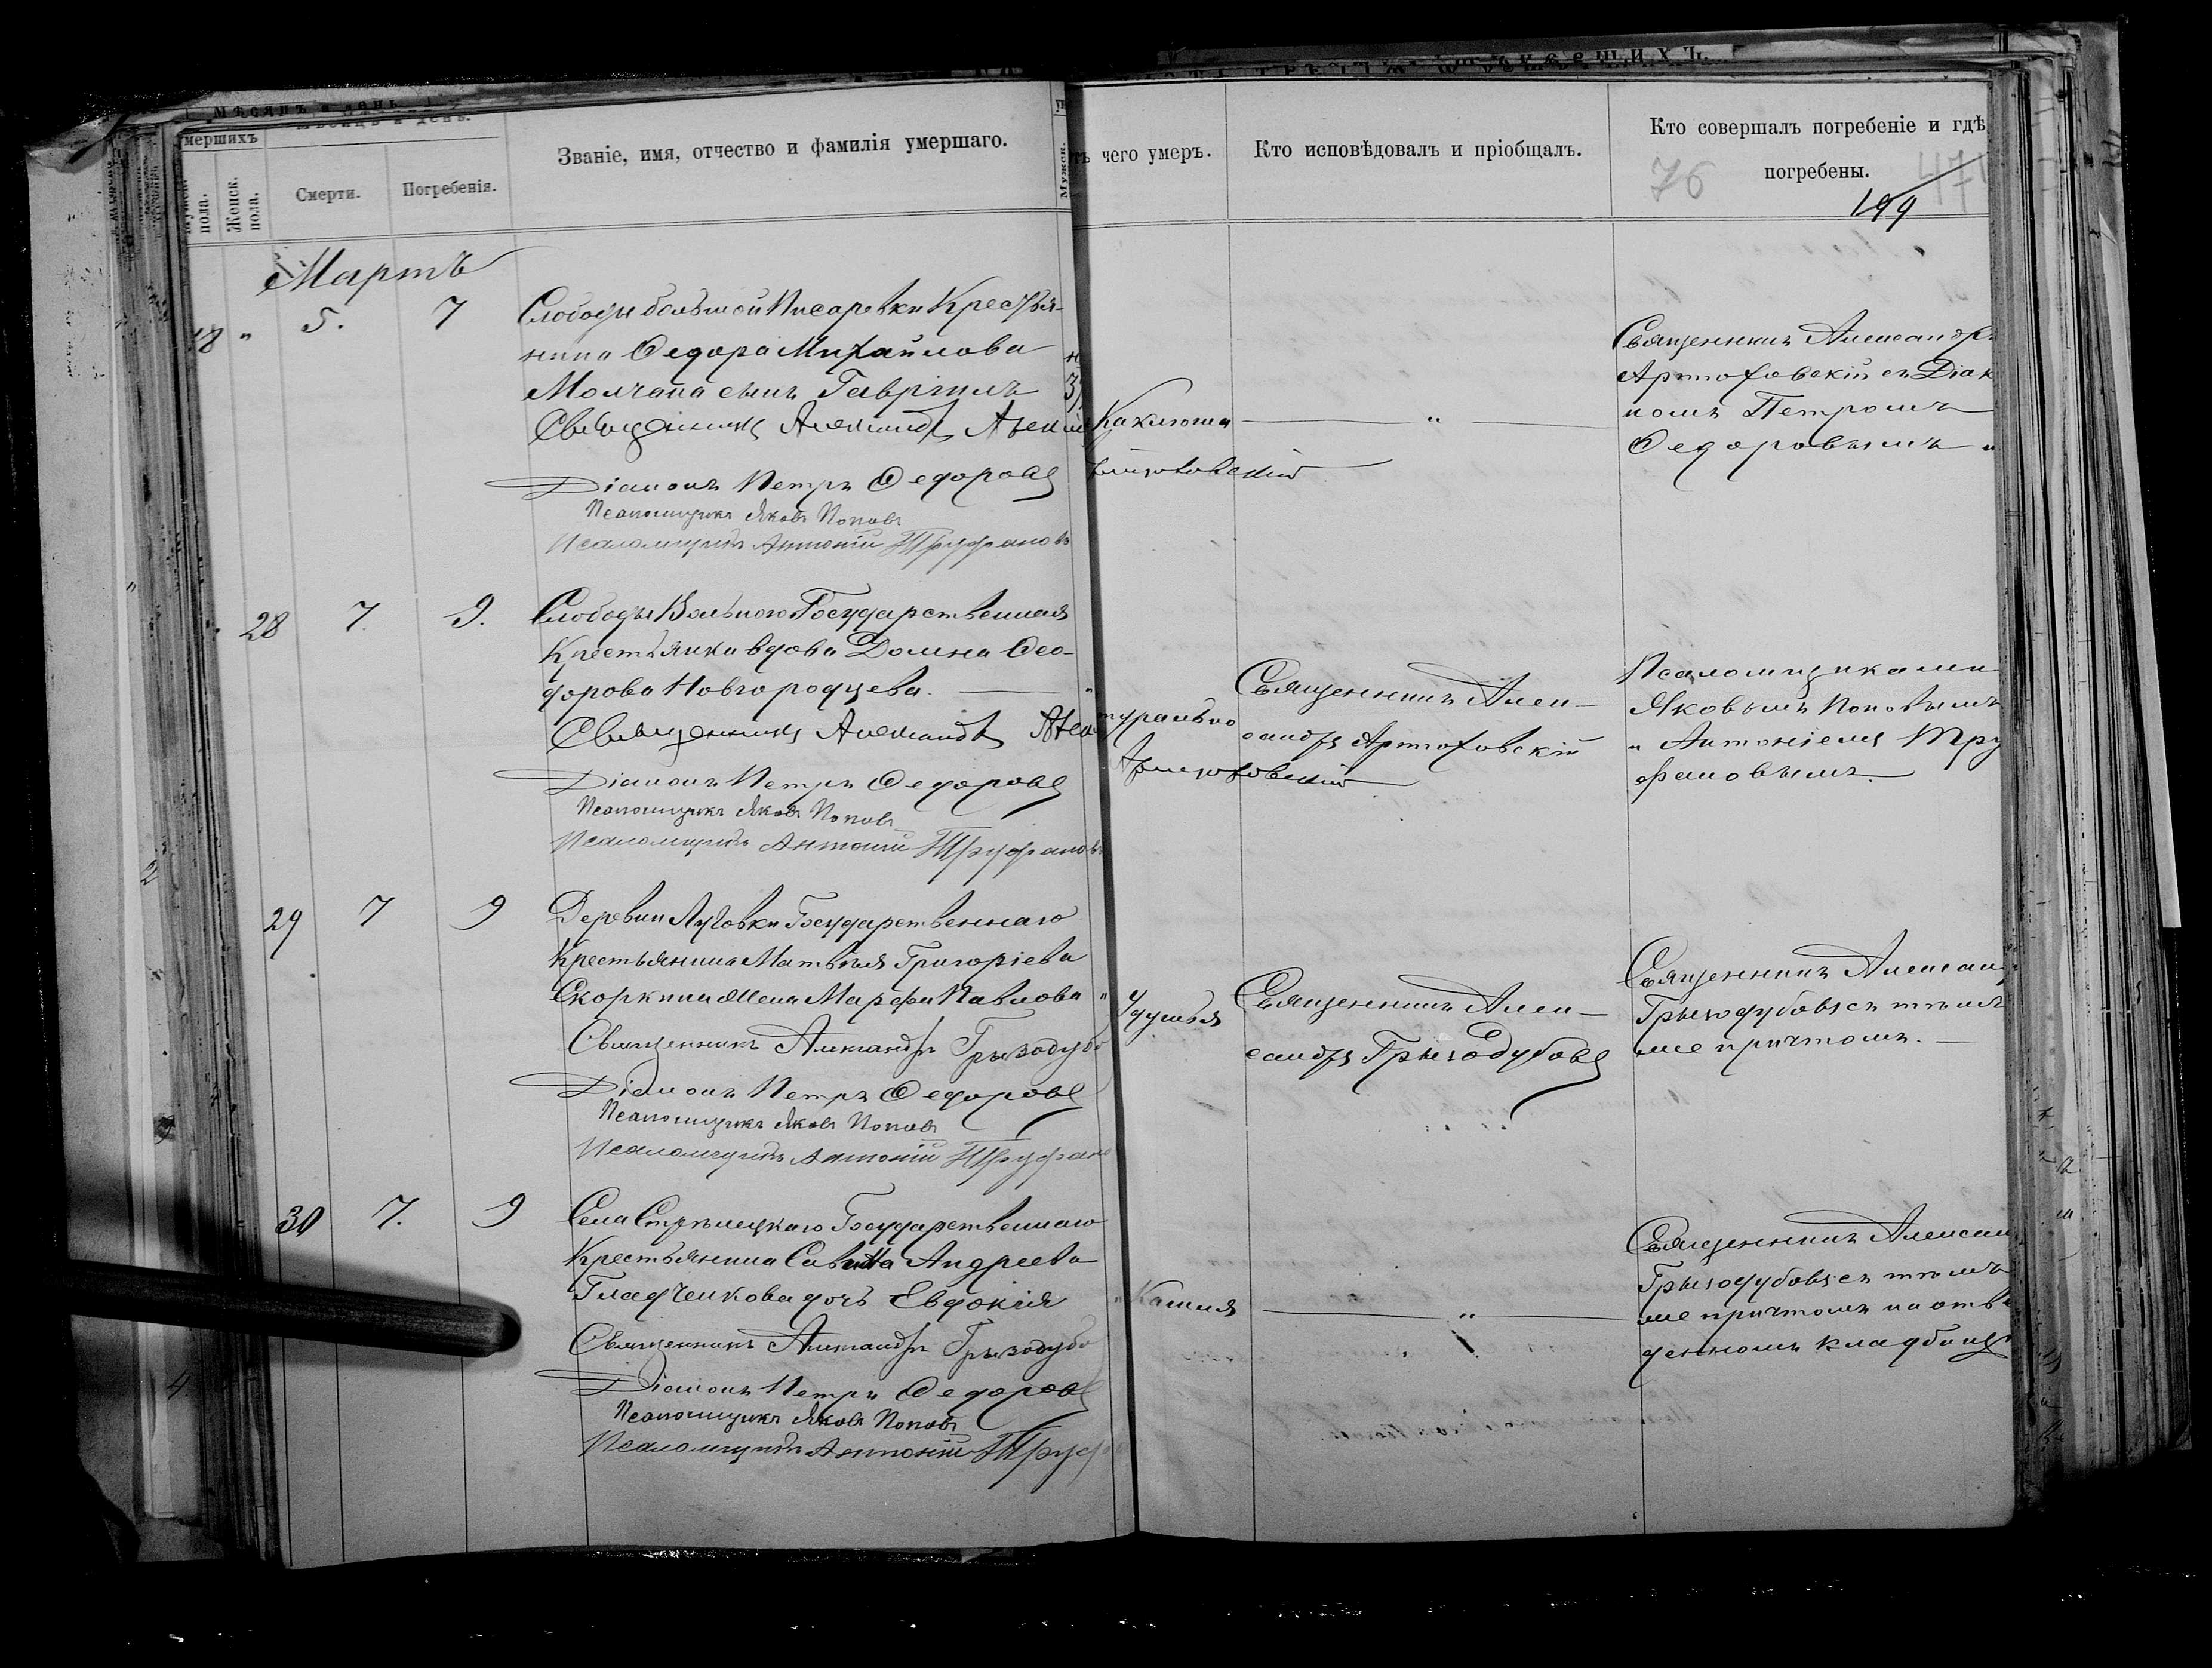 Мѣсяцъ и день.
мершихъ
пола.
Женск. пола.
Смерти.
Погребенія.
Званіе, имя, отчество и фамилія умершаго.
Мужск.
чего умеръ.
Кто исповѣдовалъ и пріобщалъ.
Кто совершалъ погребеніе и гдѣ
погребены.
76
199
Мартъ
18 " 5. 7
Слободы большой Писаревки Крестья-
нина Ѳедора Михайлова
Молчана сынъ Гавріилъ
Священникъ Александръ
Діаконъ Петръ Ѳедоровъ
Псаломщикъ Яковъ Поповъ
Псаломщикъ Антоній Труфановъ
Каклюша "
Священникъ Александръ
Артюховскій съ Діак
номъ Петромъ
Ѳедоровымъ и
28 7. 9.
Слободы Вольного Государственная
Крестьянка вдова Домна Ѳео-
дорова Новгородцева.
Священникъ Александръ
Діаконъ Петръ Ѳедоровъ
Псаломщикъ Яковъ Поповъ
Псаломщикъ Антоній Труфановъ
турально
Артюховскій
Священникъ Алек-
сандръ Артюховскій
Псаломщиками
Яковымъ Поповымъ
и Антоніемъ Тру
фановымъ.
29 7 9
Деревни Луговки Государственнаго
Крестьянина Матвѣя Григоріева
Скоркина жена Марфа Павлова "
Священникъ Александръ Грызодубо
Діаконъ Петръ Ѳедоровъ
Псаломщикъ Яковъ Поповъ
Псаломщикъ Антоній Труфано
Удушья
Священникъ Алек-
сандръ Грызодубовъ
Священникъ Алексан
Грызодубовъ съ тѣмъ
же причтомъ.
30 7. 9
Села Стрѣлецкаго Государственнаго
Крестьянина Савина Андреева
Гладченкова дочь Евдокія
Священникъ Александръ Грызодубо
Діаконъ Петръ Ѳедоровъ
Псаломщикъ Яковъ Поповъ
Псаломщикъ Антоній Труф
" Кашля "
Священникъ Алексан
Грызодубовъ съ тѣмъ
же причтомъ на отве
денномъ кладбищ